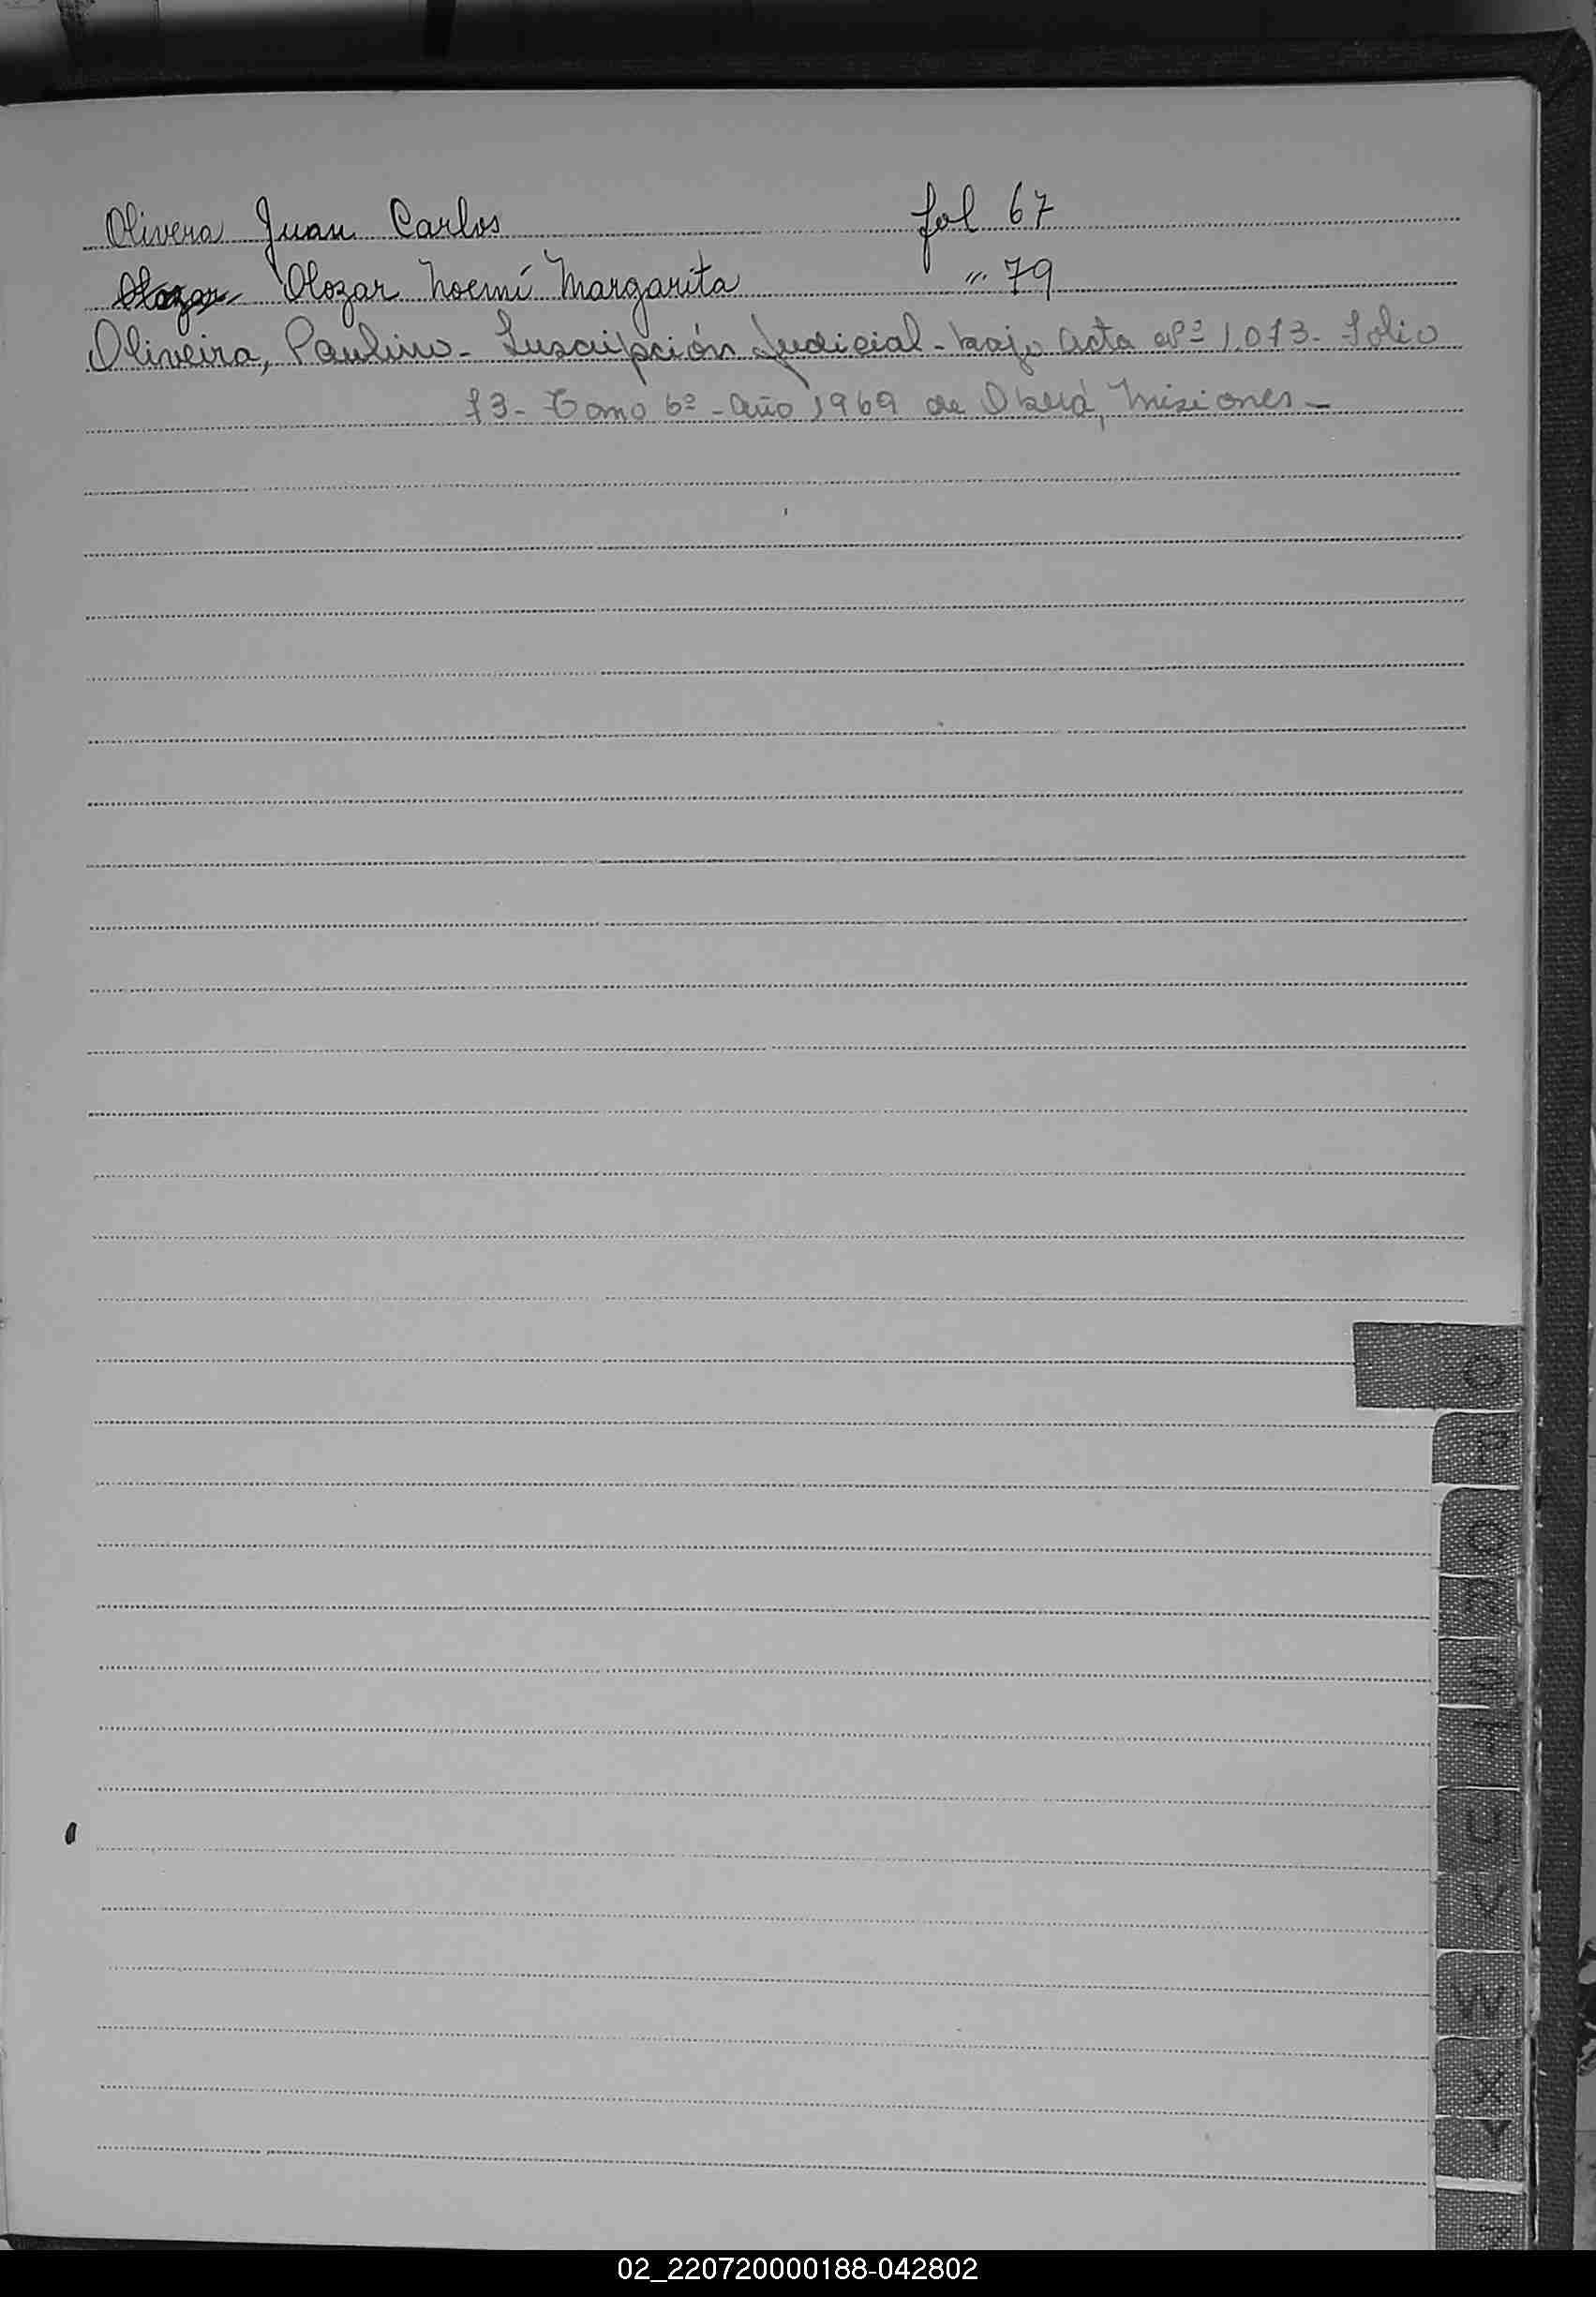 Olivera Juan Carlos fol 67
Olozar Noemí Margarita " 79
Oliveira, Paulino - Inscripción Judicial - bajo acta Nº 1.013 - Folio
13 - Tomo 6º - Año 1969 de Oberá, Misiones -
O
P
Q
R
S
T
U
V
W
X
Y
Z
02_220720000188-042802